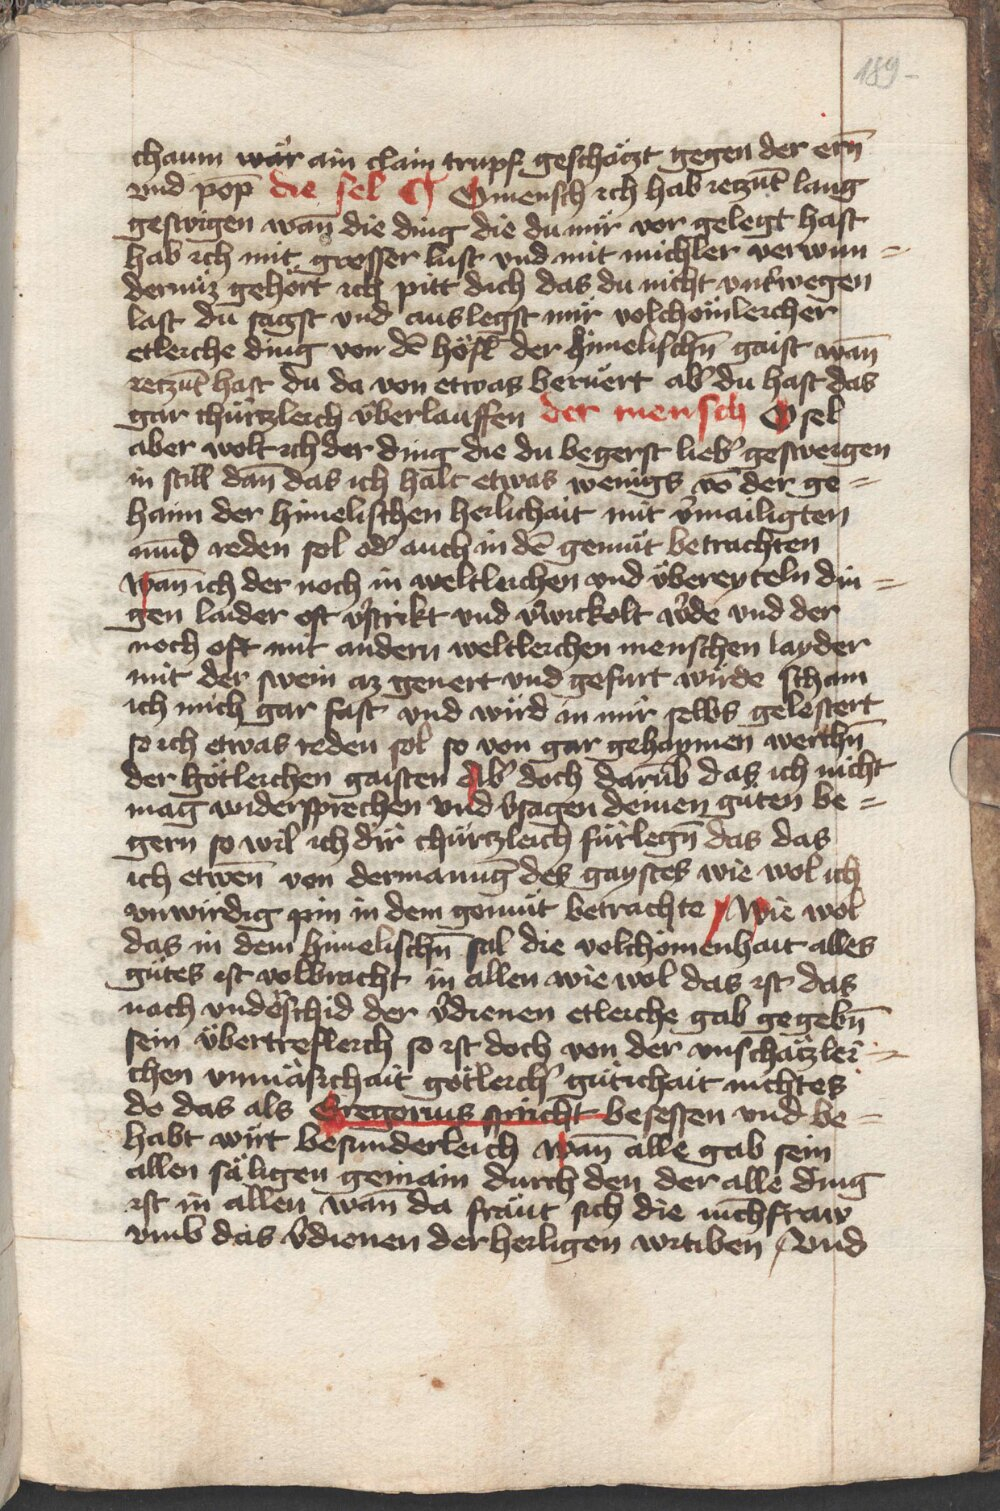 189
chaum wär ain clain trupf geschäczt gegen der ern̄
vnd pop̄ die sel ¶ O mensch ich hab ieczūt lang
geswigen wan̄ die ding die du mir vor gelegt hast
hab ich mit grosser lust vnd mit michler verwun=
dernüz gehört ich pitt dich das du nicht vnt'wegen
last du sagst vnd auslegst mir volchömleicher
etleiche ding von dē höfl̄ der himelischn̄ gaist wan̄
ieczūt hast du da von etwas berüert ab' du hast das
gar chürczleich überlauffen der mensch O sel
aber wolt ich der ding die du begerst lieb' gesweigen
in still dan̄ das ich halt etwas wenigs vō der ge=
haim der himelischen herlichait mit v'mailigten
mund reden sol od' auch in dē gemüt betrachten
wan̄ ich der noch in weltleichen vnd übereyteln din=
gen laider oft v'strikt vnd v'wickolt w'de vnd der
noch oft mit andern weltleichen menschen layder
mit der swein az genert vnd gefürt würde scham
ich mich gar fast vnd wird in mir selbs gelestert
so ich etwas reden sol so von gar gehaymen werchn̄
der götleichen gaisten Ab' doch darūb das ich nicht
mag widersprechen vnd v'sagen deinen güten be=
gern so wil ich dir chürczleich fürlegn̄ das das
ich etwen̄ von dermanūg des gaystes wie wol ich
vnwirdig pin in dem gemüt betrachte Wie wol
das in dem himelischn̄ sal die volchömenhait alles
gütes ist volbracht in allen wie wol das ist das
nach vnd'schid der v'dienen etleiche gab gegebn̄
sein übertrefleich so ist doch von der vnschäczlei=
chen vnmäsichait götleich' gütichait nichtes
do das als Gregorius spricht besessen vnd be=
habt wirt besunderleich wan̄ alle gab sein
allen säligen gemain durch den der alle ding
ist in allen wan̄ da fräut sich die iūchfraw
vmb das v'dienen der heiligen witiben Vnd